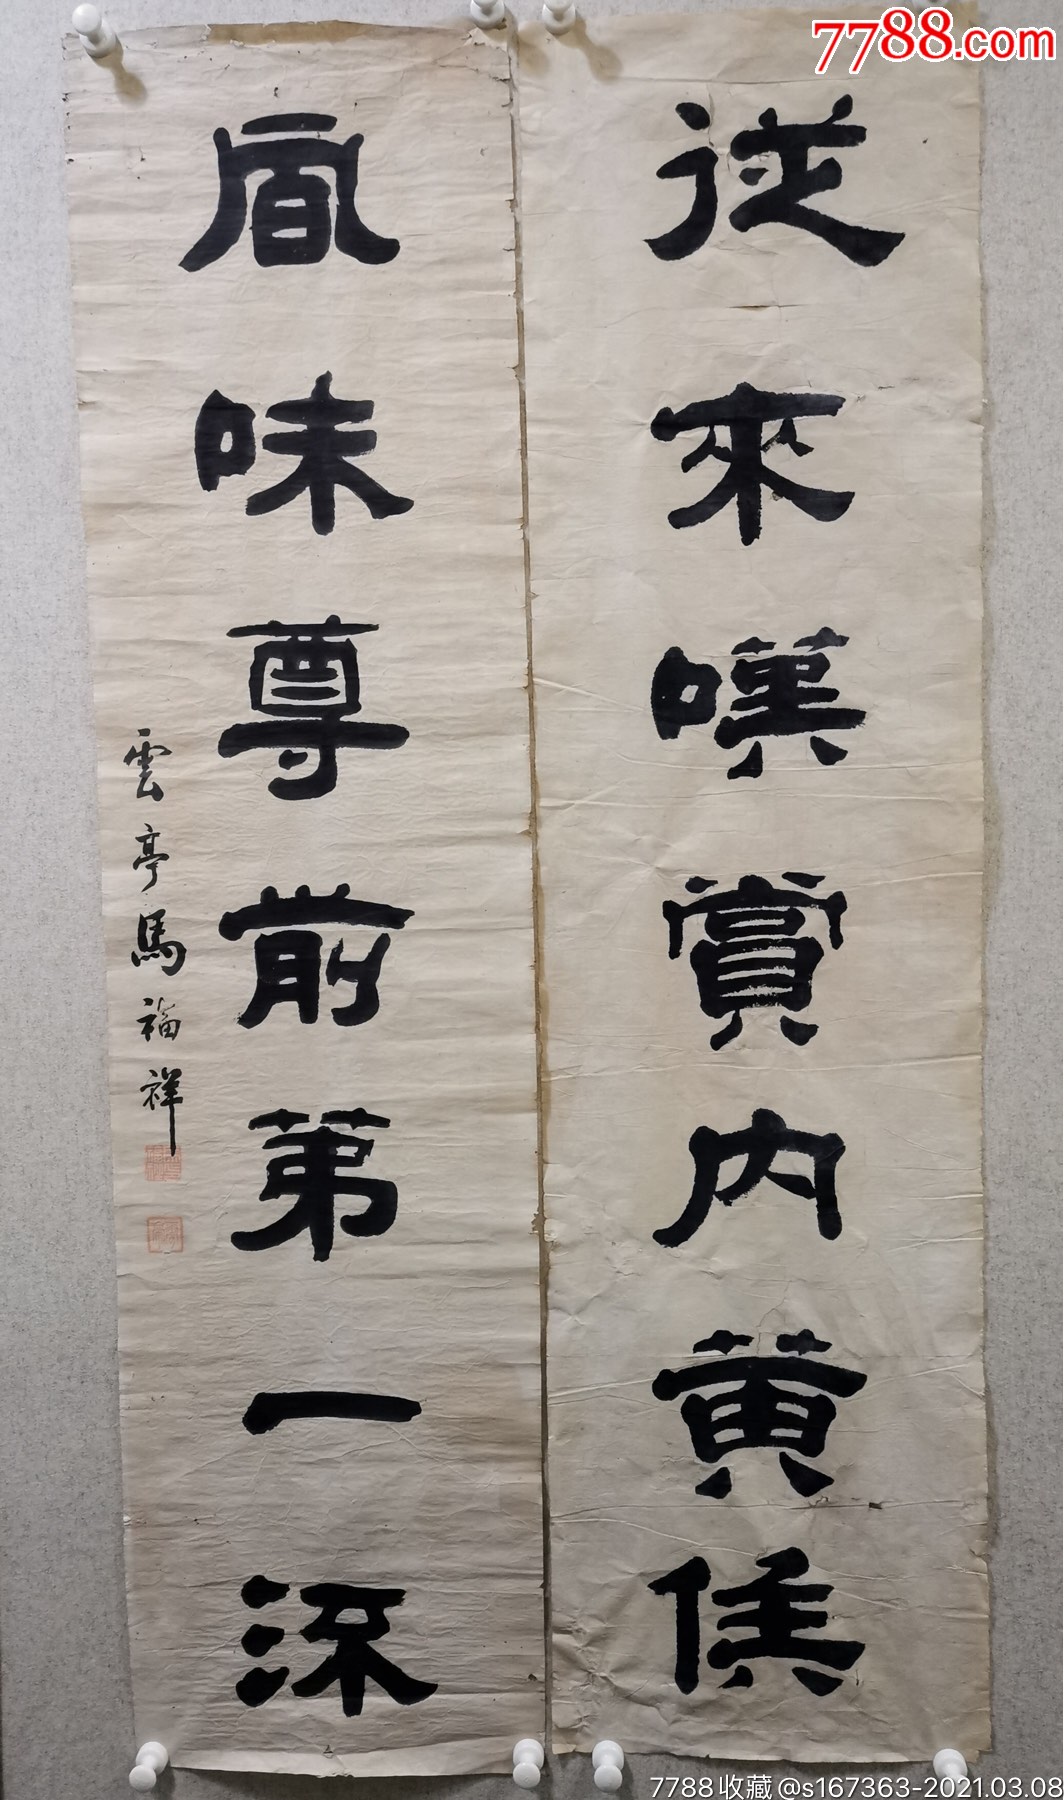 7788.com
從來嘆賞內黃侯
風味尊前第一流
雲亭馬福祥
7788收藏@s167363-2021.03.08